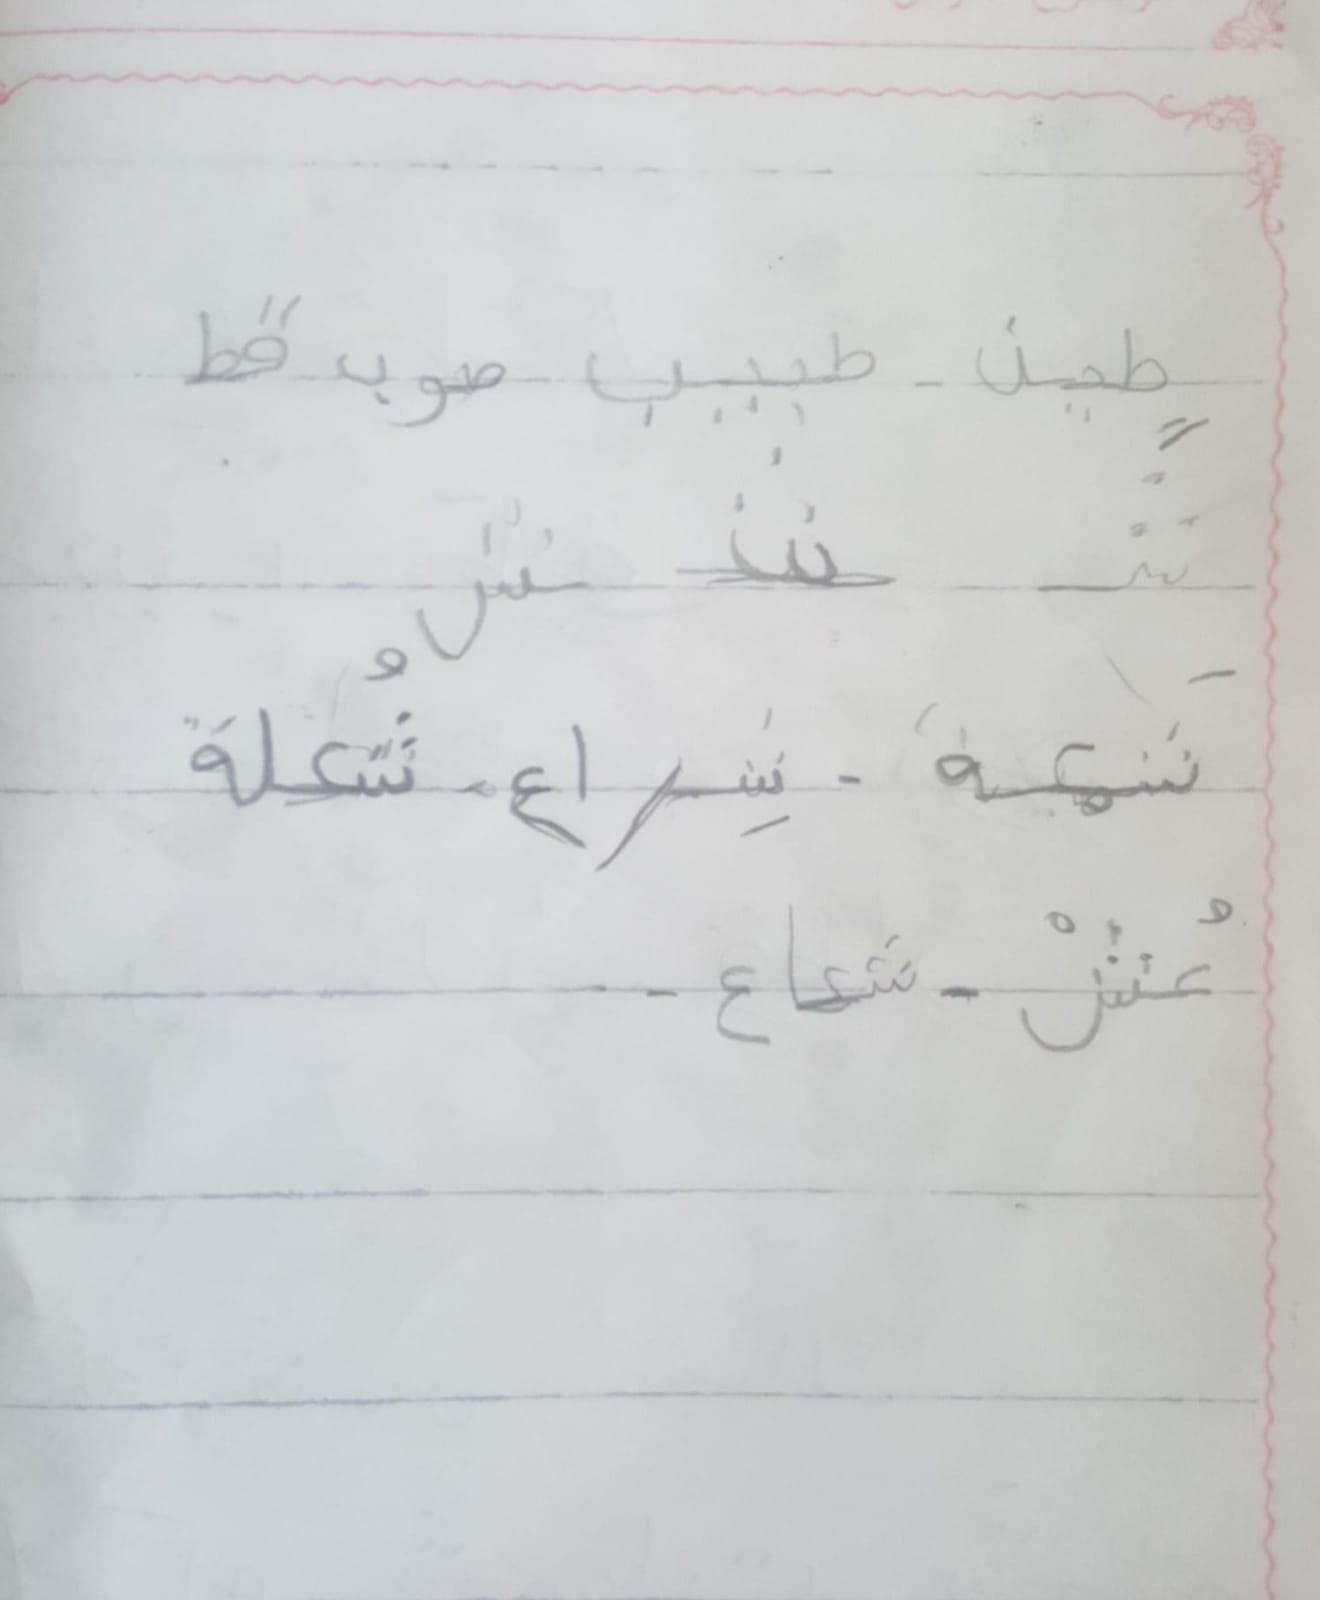 طين - طبيب - صوب قط
شـ ـشـ ـش
شمعة - شِراع - شُعلة
عُشْ - شعاع -